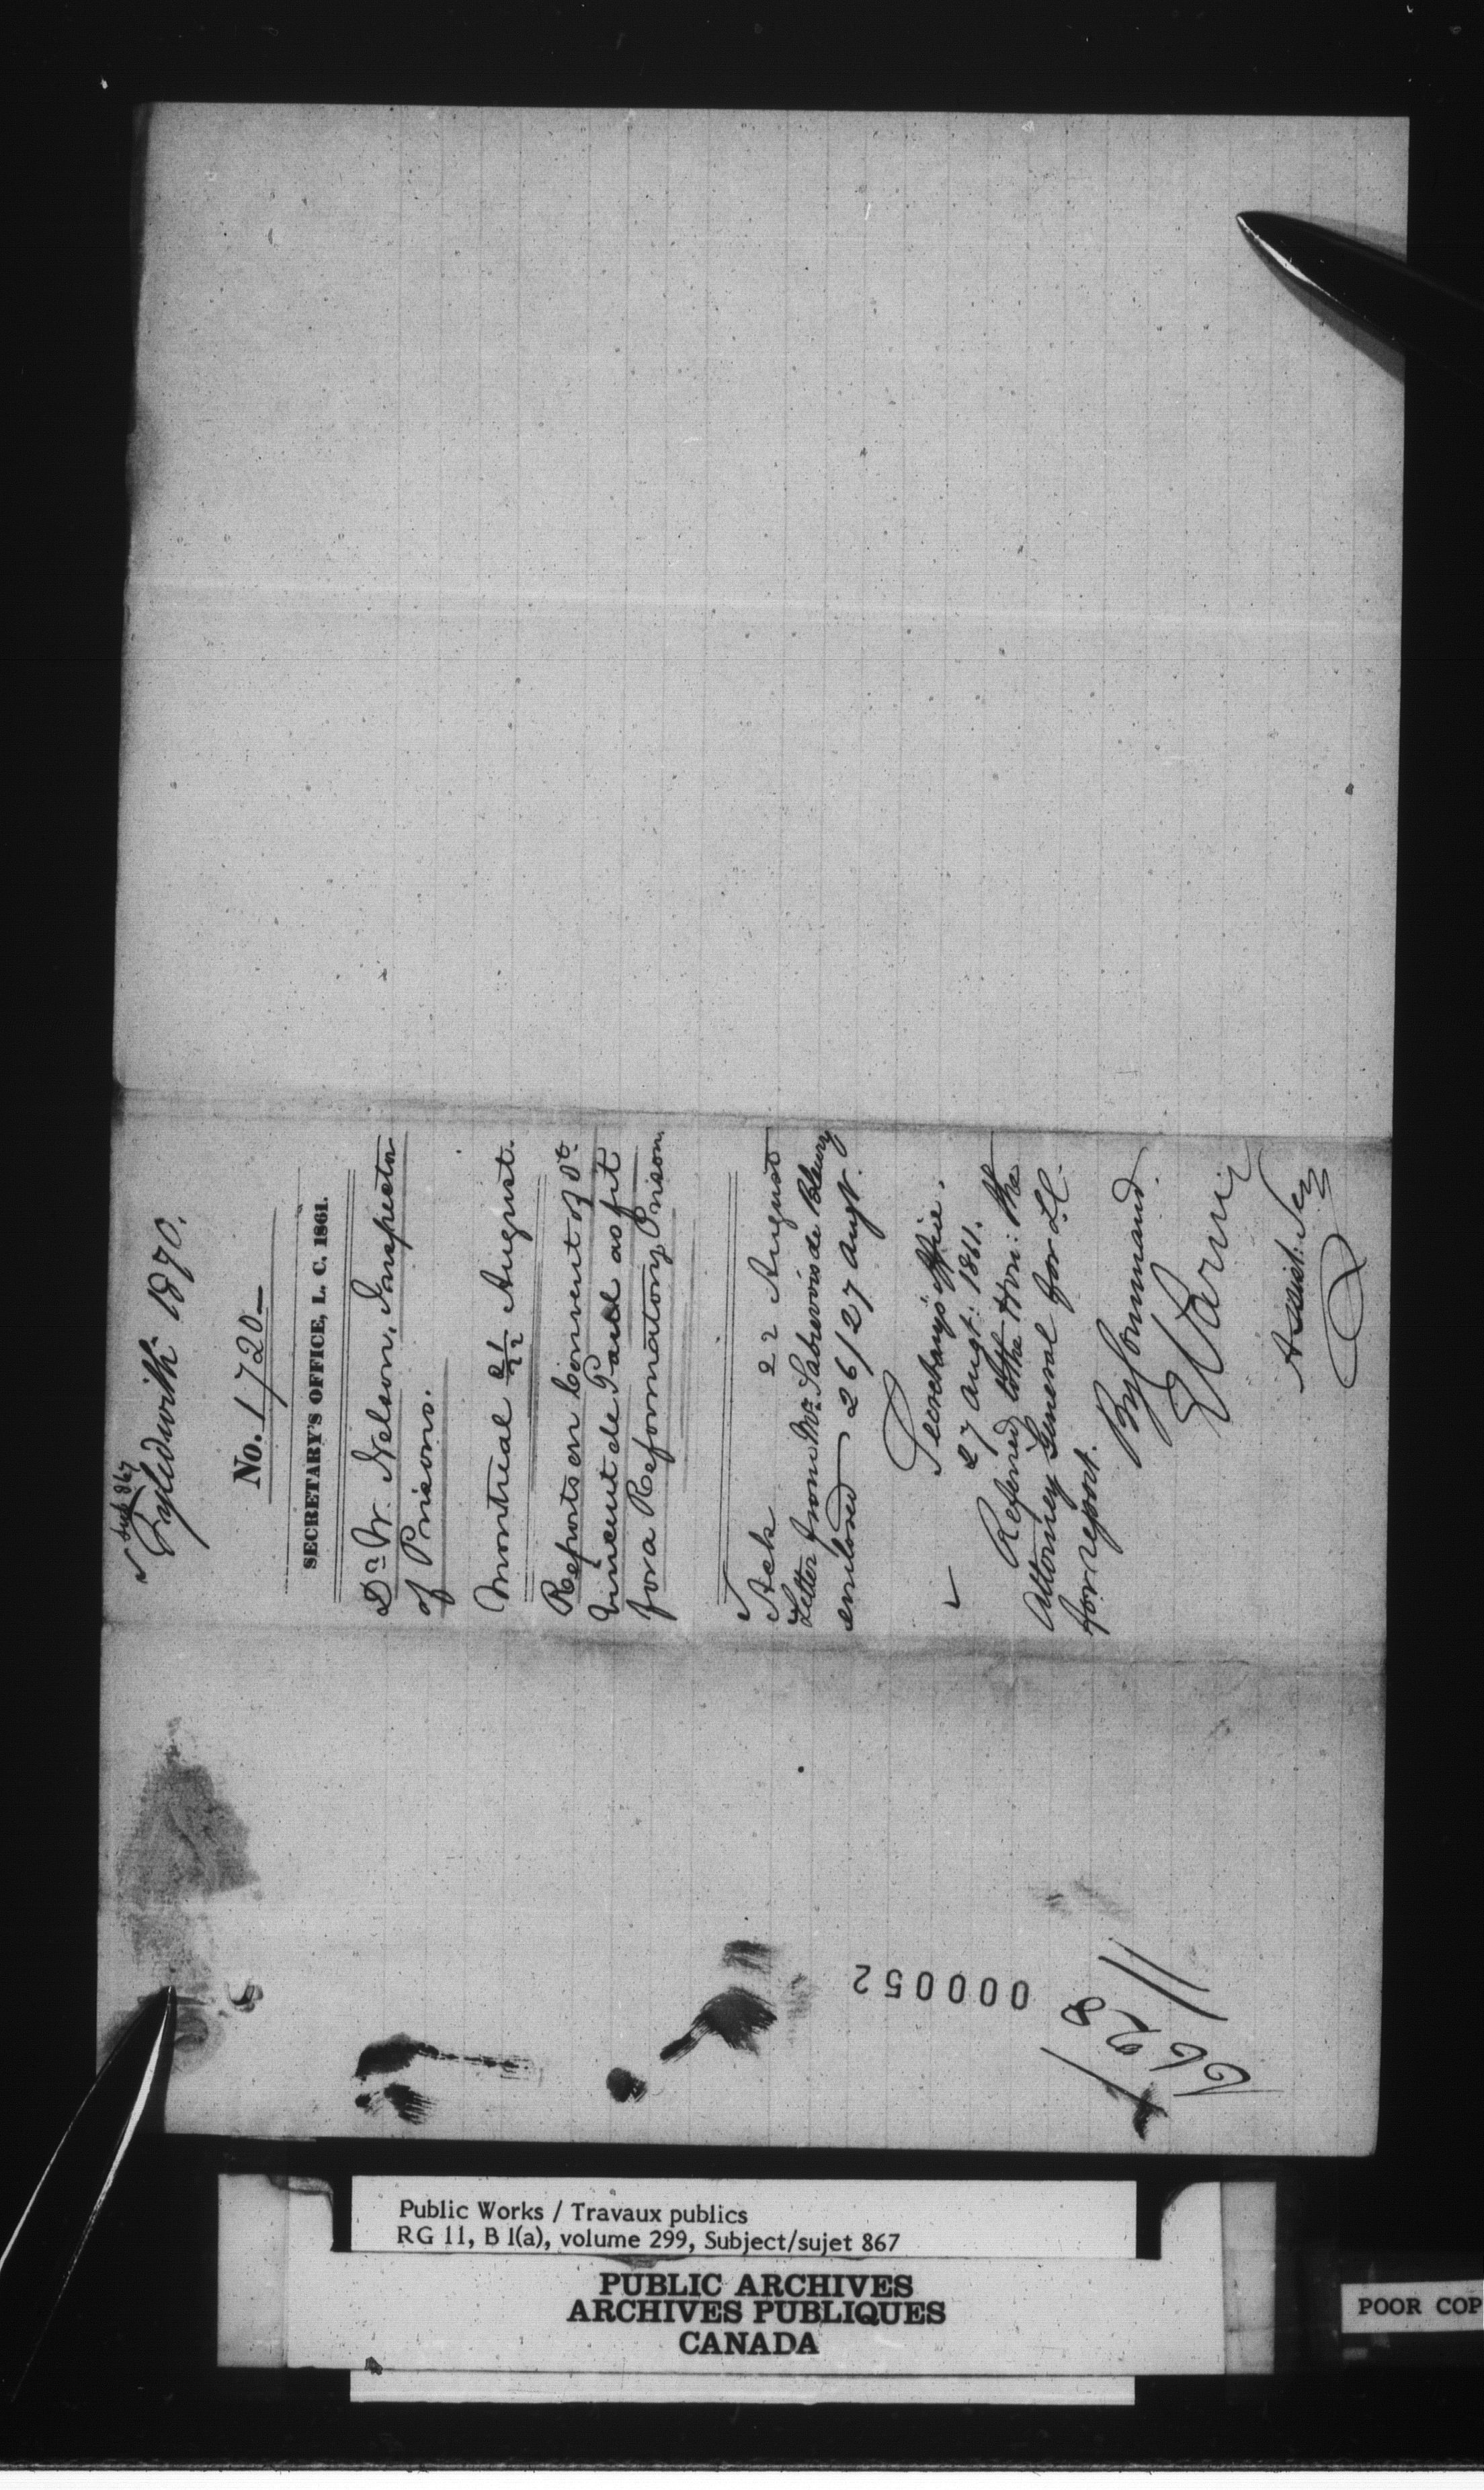 Sub 867
Fyled with 1870.
No. 1720
SECRETARY'S OFFICE, L. C. 1861.
Dr W. Nelson, Inspector
of Prisons.
Montreal 21/22 August.
Reports on Convent of St
Vincent de Paul as fit
for a Reformatory Prison.
Ack 22 August
Letter from Mr. Sabrevois de Bleury
enclosed 26/27 Augt.
Secretary's Office.
27 Augt. 1861.
Referred to the Hon: the
Attorney General for L.C.
for report.
By Command.
E Parent
Assist. Secy
000052
6628
Public Works / Travaux publics
RG 11, B 1(a), volume 299, Subject/sujet 867
PUBLIC ARCHIVES
ARCHIVES PUBLIQUES
CANADA
POOR COP